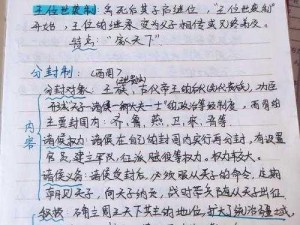 王位世袭制：禹死后其子启继位，"王位世袭制"
开始，王位的继承变为父子相传或兄终弟及。
特点："家天下"
分封制：（西周）
分封对象：王族、功臣、古代帝王的后代（先代贵族）
形成"天子-诸侯-卿大夫-士"的政治等级制度，西周的
主要封国有：齐、鲁、燕、卫、宋、晋等
内容
诸侯权力：诸侯在自己的封国内实行再分封，有设置
官员、建立军队、征派赋役等权力。权力较大。
诸侯义务：诸侯受封后，必须服从天子的命令，定期
朝见天子，向天子纳贡，战时带兵随从天子出征
确立周王天下共主的地位，扩大了统治疆域，